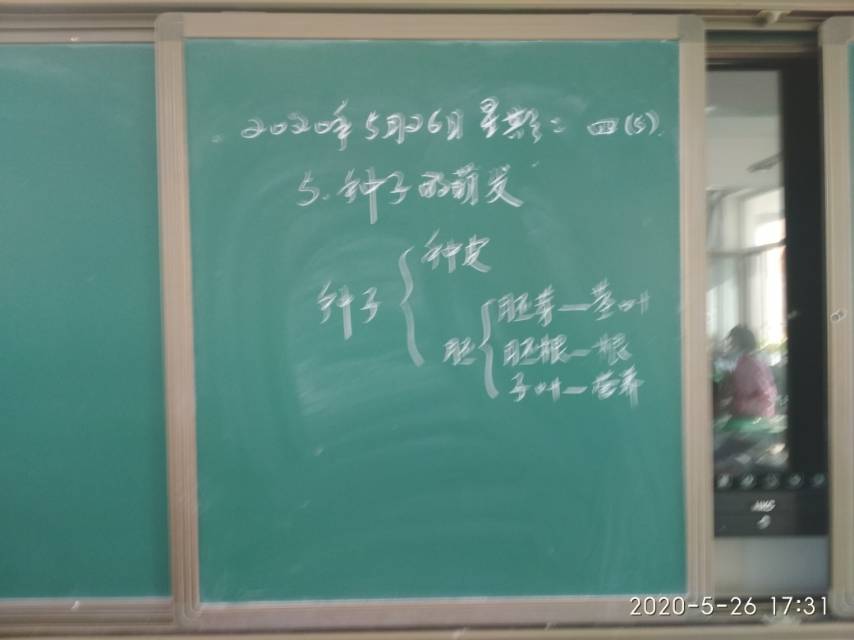 2020年5月26日 星期二 四(5)
5.种子的萌发
种子
种皮
胚
胚芽—茎叶
胚根—根
子叶—营养
2020-5-26 17:31